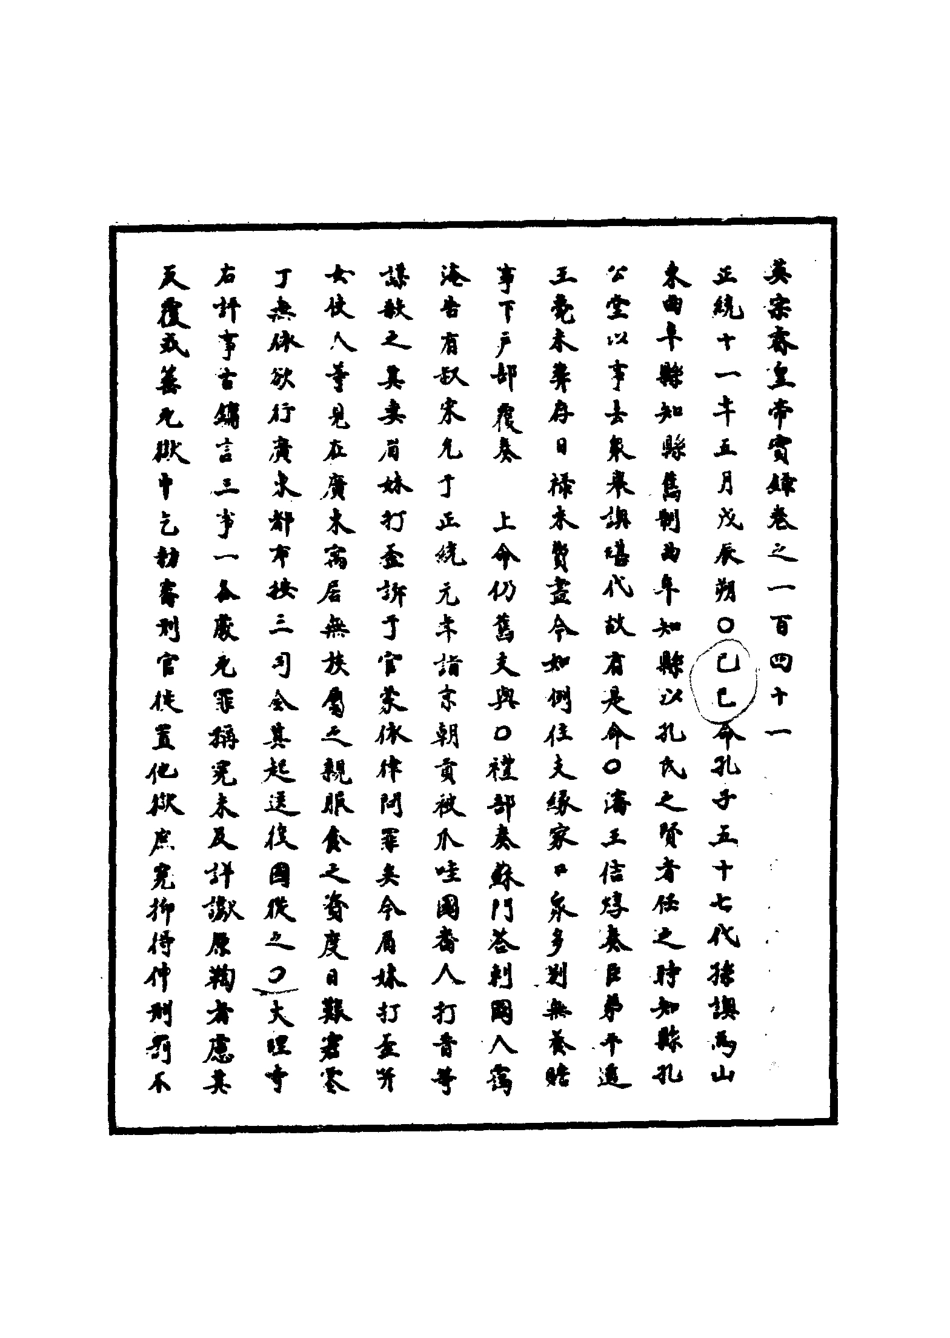 英宗睿皇帝實錄卷之一百四十一
正統十一年五月戊辰朔〇己巳命孔子五十七代孫諹為山
東曲阜縣知縣舊制曲阜知縣以孔氏之賢者任之時知縣孔
公堂以事去衆舉諹堪代故有是命〇瀋王佶焞奏臣弟平遙
王薨未葬存日祿米費盡今如例住支緣家口衆多別無養贍
事下戶部覆奏　上命仍舊支與〇禮部奏蘇門答剌國人靄
淹告有叔宋允于正統元年詣京朝貢被爪哇國番人打昔等
謀殺之其妻眉妹打歪訴于官蒙依律問罪矣今眉妹打歪并
女伎人等見在廣東寓居無族屬之親服食之資度日艱窘零
丁無依欲行廣東都布按三司令其起送復國從之〇大理寺
右評事古鏞言三事一各處死罪稱冤未及詳讞原鞫者慮其
反覆或蓋死獄中乞勅審刑官徙置他獄庶冤抑得伸刑罰不